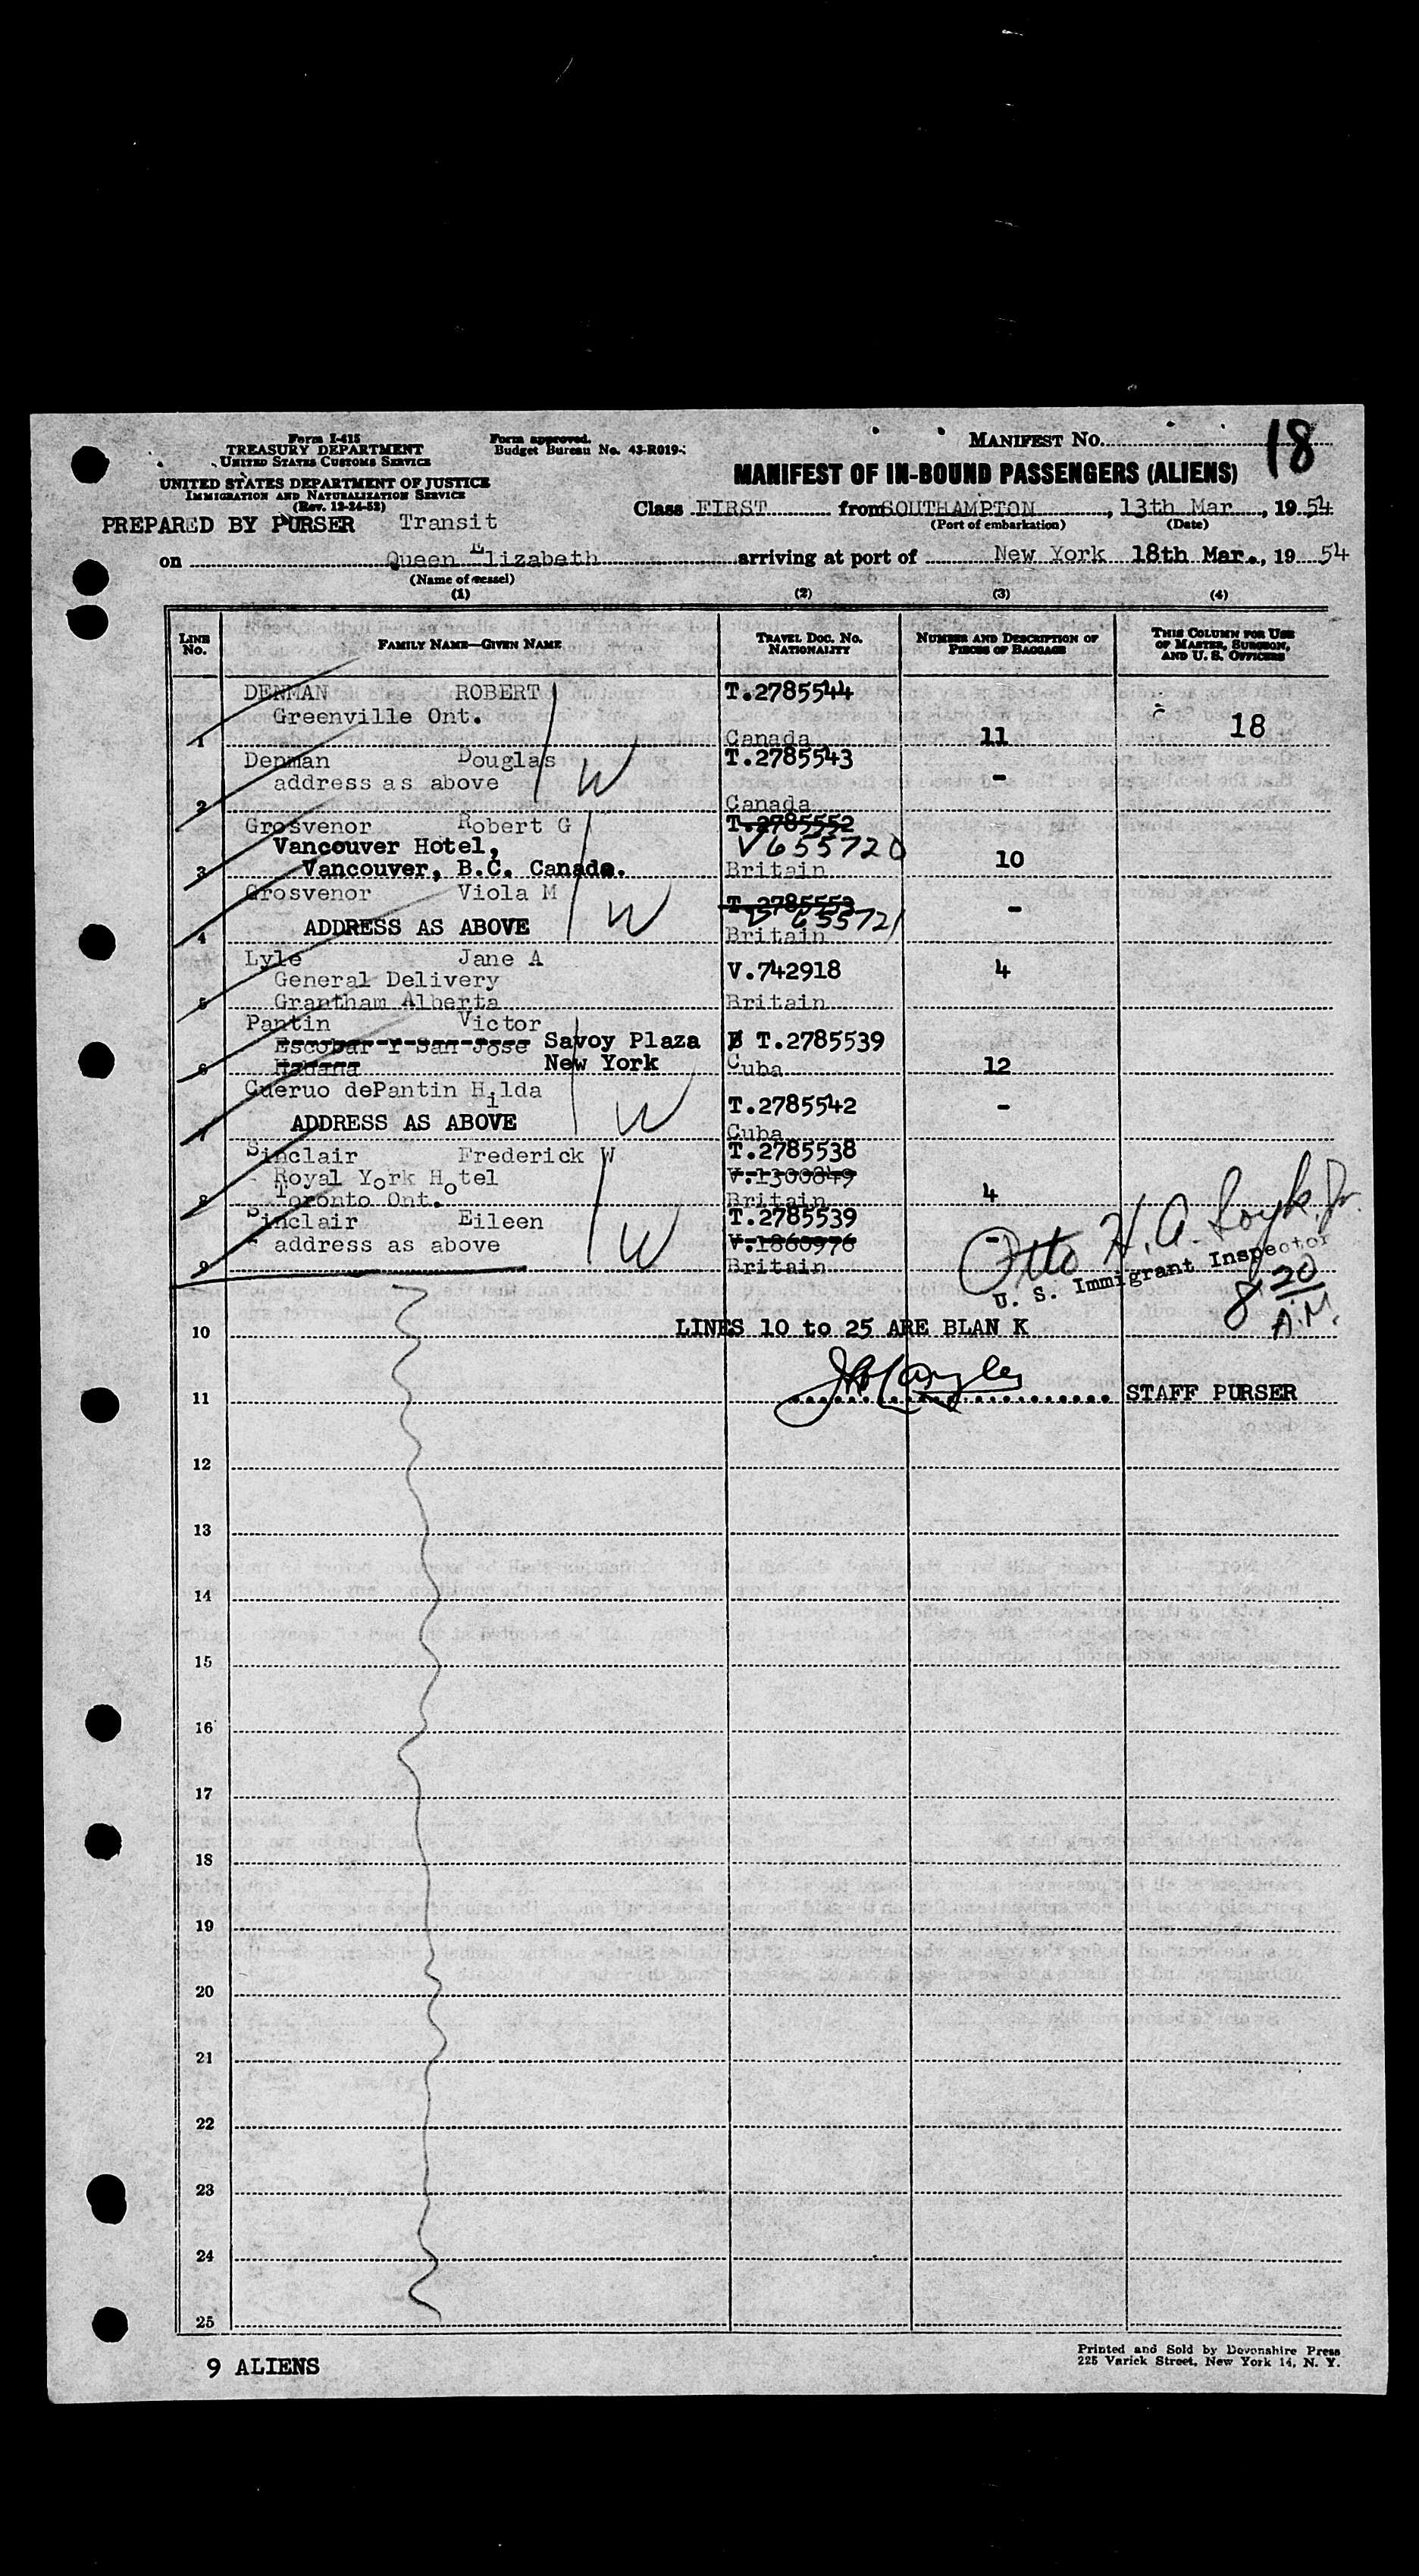 Form I-415
TREASURY DEPARTMENT
UNITED STATES CUSTOMS SERVICE
UNITED STATES DEPARTMENT OF JUSTICE
IMMIGRATION AND NATURALIZATION SERVICE
(Rev. 12-24-52)
Form approved.
Budget Bureau No. 43-R019-
MANIFEST NO. 18
MANIFEST OF IN-BOUND PASSENGERS (ALIENS)
PREPARED BY PURSER Transit
Class FIRST from SOUTHAMPTON, 13th Mar, 1954
(Port of embarkation) (Date)
on Queen Elizabeth arriving at port of New York 18th Mar., 1954
(Name of vessel)
(1) (2) (3) (4)
LINE No. FAMILY NAME—GIVEN NAME TRAVEL DOC. NO. NATIONALITY NUMBER AND DESCRIPTION OF PIECES OF BAGGAGE THIS COLUMN FOR USE OF MASTER, SURGEON, AND U. S. OFFICERS
DENMAN ROBERT T.2785544
Greenville Ont. 18
1 Canada 11
Denman Douglas T.2785543
address as above W -
2 Canada
Grosvenor Robert G T.2785552
Vancouver Hotel, V655720
3 Vancouver, B.C. Canada. Britain 10
Grosvenor Viola M T.2785553
ADDRESS AS ABOVE W V 655721 -
4 Britain
Lyle Jane A
General Delivery V.742918 4
5 Grantham Alberta Britain
Pantin Victor
Escobar Y San Jose Savoy Plaza B T.2785539
6 Habana New York Cuba 12
Cueruo dePantin Hilda
ADDRESS AS ABOVE W T.2785542 -
7 Cuba
Sinclair Frederick W T.2785538
Royal York Hotel V.1300849
8 Toronto Ont. Britain 4
Sinclair Eileen T.2785539
address as above W V.1860976 -
9 Britain
Otto H. A.
U. S. Immigrant Inspector
8 20 A.M.
10 LINES 10 to 25 ARE BLAN K
11 STAFF PURSER
12
13
14
15
16
17
18
19
20
21
22
23
24
25
9 ALIENS
Printed and Sold by Devonshire Press
225 Varick Street, New York 14, N. Y.